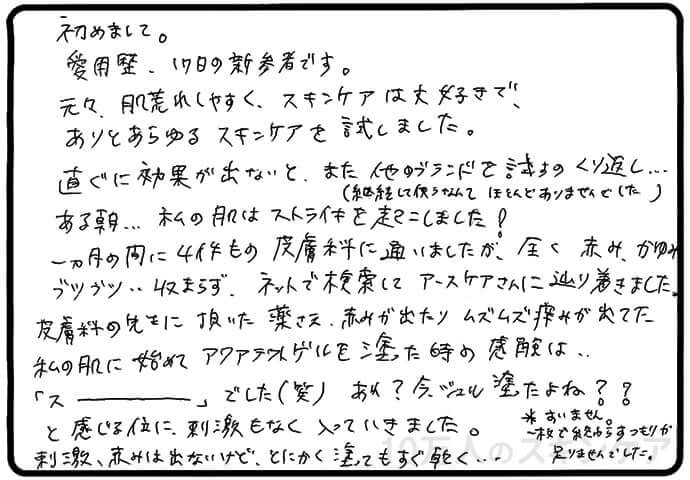 初めまして。
愛用歴、17日の新参者です。
元々、肌荒れしやすく、スキンケアは大好きで、
ありとあらゆるスキンケアを試しました。
直ぐに効果が出ないと、また他のブランドを試すのくり返し…
(継続して使うなんてほとんどありませんでした)
ある朝…私の肌はストライキを起こしました!
一ヵ月の間に4件もの皮膚科に通いましたが、全く赤み、かゆみ
ブツブツ‥収まらず、ネットで検索してアースケアさんに辿り着きました。
皮膚科の先生に頂いた薬さえ、赤みが出たりムズムズ痒みが出てた
私の肌に始めてアクアテクトゲルを塗た時の感験は‥
「スー」でした(笑) あれ?今、ジェル塗たよね??
と感じる位に、刺激もなく入っていきました。
*すいません。
一枚で終わらすつもりが
足りませんでした。
刺激、赤みは出ないけど、とにかく塗てもすぐ乾く…
10万人のスキンケア